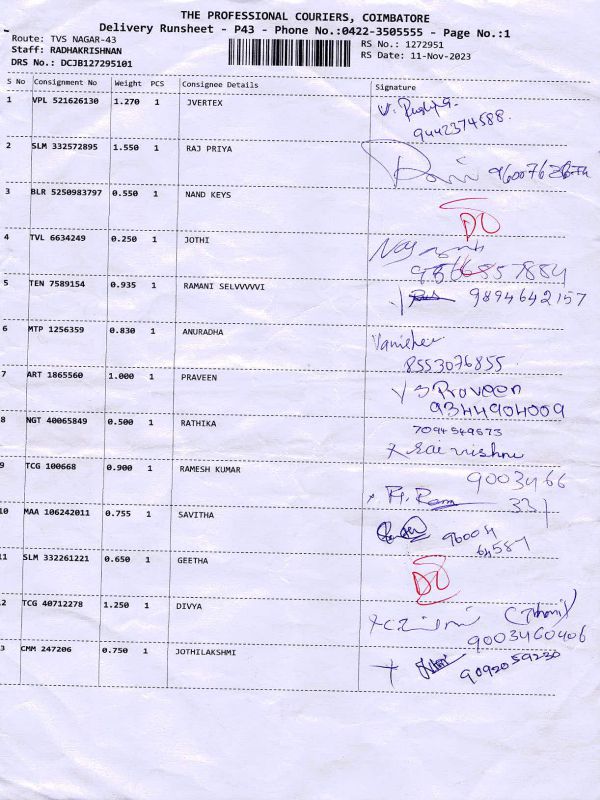 THE PROFESSIONAL COURIERS, COIMBATORE
Delivery Runsheet - P43 - Phone No.:0422-3505555 - Page No.:1
Route: TVS NAGAR-43
RS No.: 1272951
Staff: RADHAKRISHNAN
RS Date: 11-Nov-2023
DRS No.: DCJB127295101
S No Consignment No Weight PCS Consignee Details Signature
1 VPL 521626130 1.270 1 JVERTEX
9442374588.
2 SLM 332572895 1.550 1 RAJ PRIYA
3 BLR 5250983797 0.550 1 NAND KEYS
DO
4 TVL 6634249 0.250 1 JOTHI
5 TEN 7589154 0.935 1 RAMANI SELVVVVVI 9894642157
6 MTP 1256359 0.830 1 ANURADHA
8553076855.
7 ART 1865560 1.000 1 PRAVEEN S Praveen
9344904009
8 NGT 40065849 0.500 1 RATHIKA 7094549573
Sai vishnu
9 TCG 100668 0.900 1 RAMESH KUMAR 9003466
331
10 MAA 106242011 0.755 1 SAVITHA 96004
64587
11 SLM 332261221 0.650 1 GEETHA
DO
12 TCG 40712278 1.250 1 DIVYA
9003460406
13 CMM 247206 0.750 1 JOTHILAKSHMI 9092059230